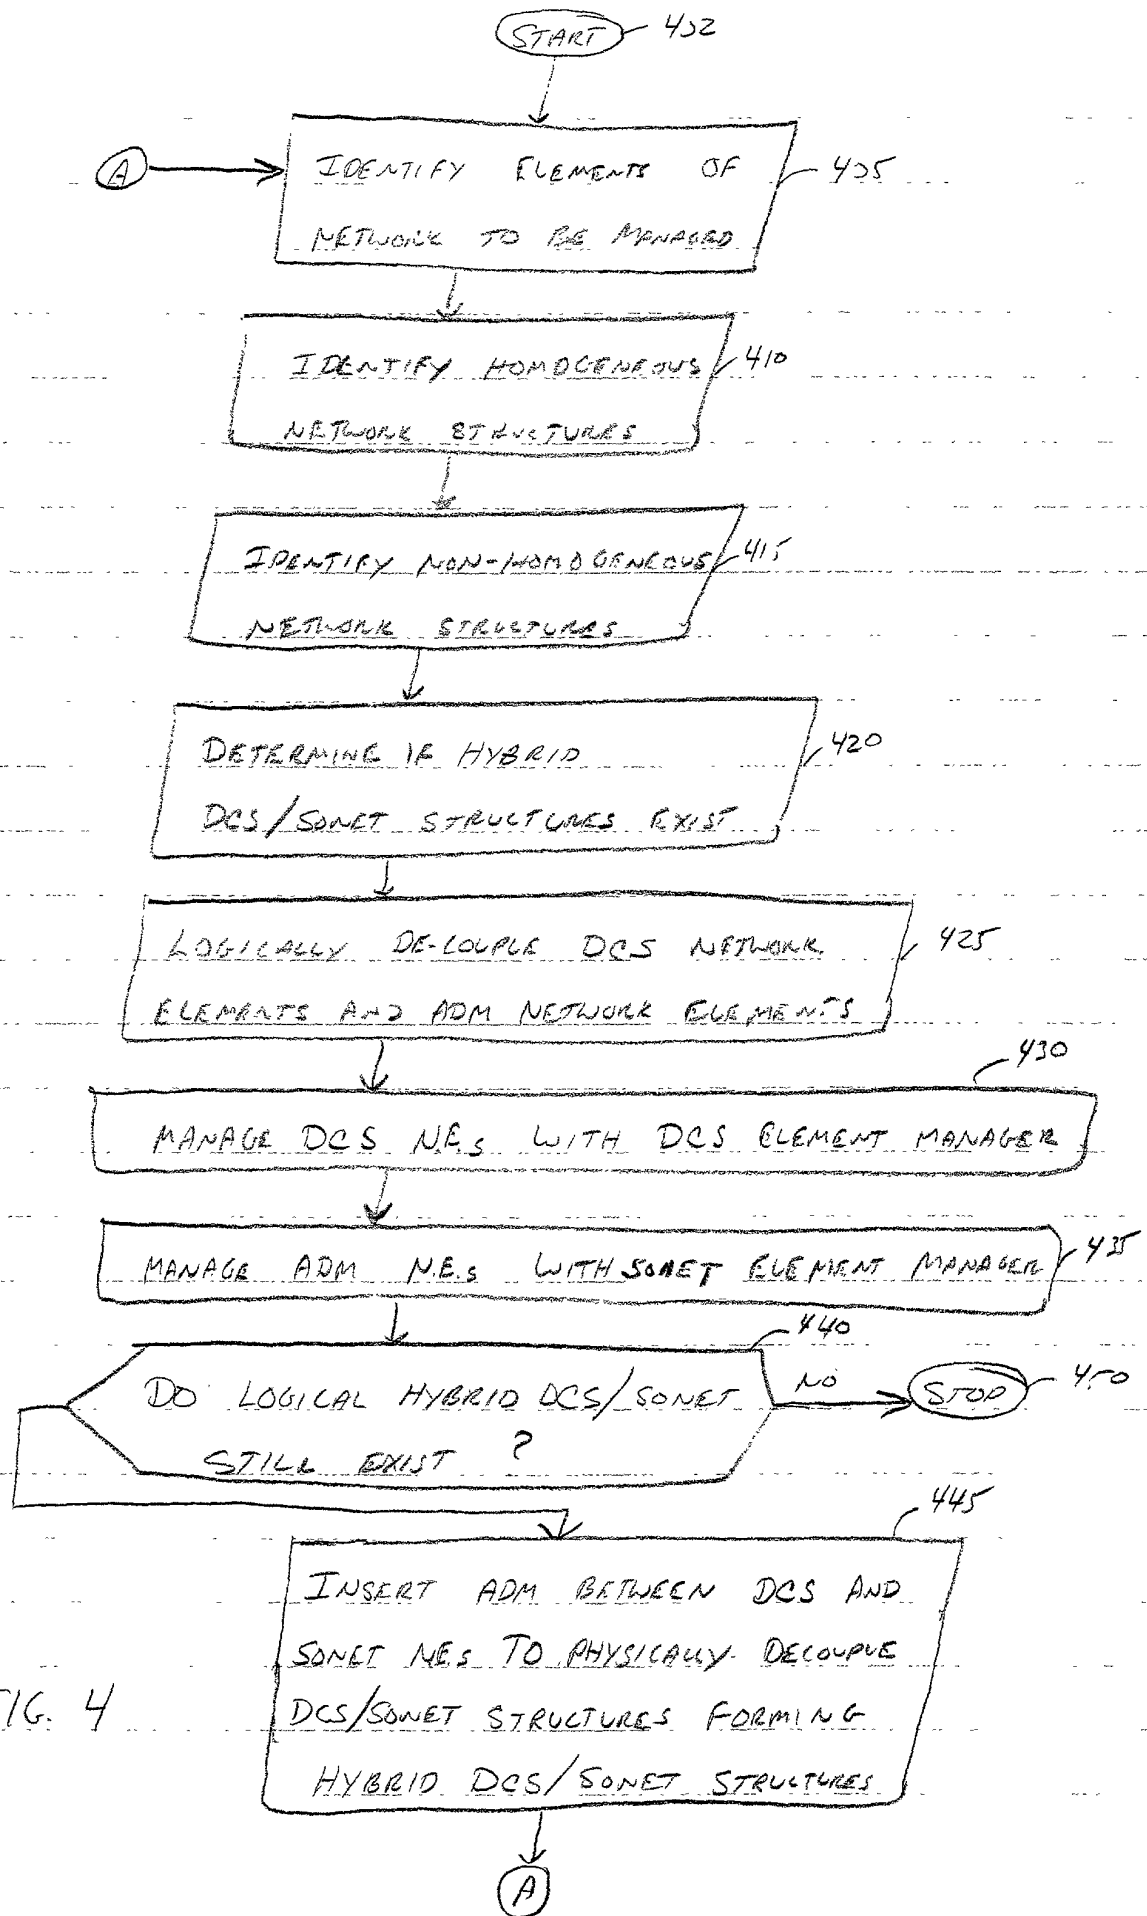 START 402
A
IDENTIFY ELEMENTS OF
NETWORK TO BE MANAGED
405
IDENTIFY HOMOGENEOUS
NETWORK STRUCTURES
410
IDENTIFY NON-HOMOGENEOUS
NETWORK STRUCTURES
415
DETERMINE IF HYBRID
DCS/SONET STRUCTURES EXIST
420
LOGICALLY DE-COUPLE DCS NETWORK
ELEMENTS AND ADM NETWORK ELEMENTS
425
430
MANAGE DCS N.E.s WITH DCS ELEMENT MANAGER
MANAGE ADM N.E.s WITH SONET ELEMENT MANAGER
435
440
DO LOGICAL HYBRID DCS/SONET
STILL EXIST ?
NO
STOP 450
445
INSERT ADM BETWEEN DCS AND
SONET NEs TO PHYSICALLY DECOUPLE
DCS/SONET STRUCTURES FORMING
HYBRID DCS/SONET STRUCTURES
A
IG. 4